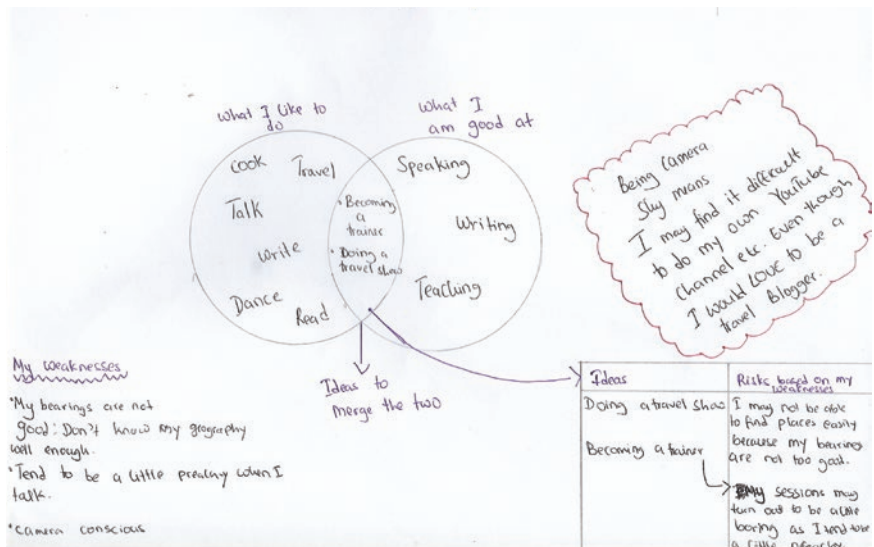 What I like to
do
Cook
Travel
Talk
Write
Dance
Read
• Becoming
a
trainer
• Doing a
travel show
What I
am good at
Speaking
Writing
Teaching
Ideas to
merge the two
Being camera
Shy means
I may find it difficult
to do my own YouTube
channel etc. Even though
I would LOVE to be a
travel Blogger.
My weaknesses
• My bearings are not
good: Don't know my geography
well enough.
• Tend to be a little preachy when I
talk.
• camera conscious
Ideas
Doing a travel show
Becoming a trainer
Risks based on my
weaknesses
I may not be able
to find places easily
because my bearings
are not too good.
My sessions may
turn out to be a little
boring as I tend to be
a little preachy.